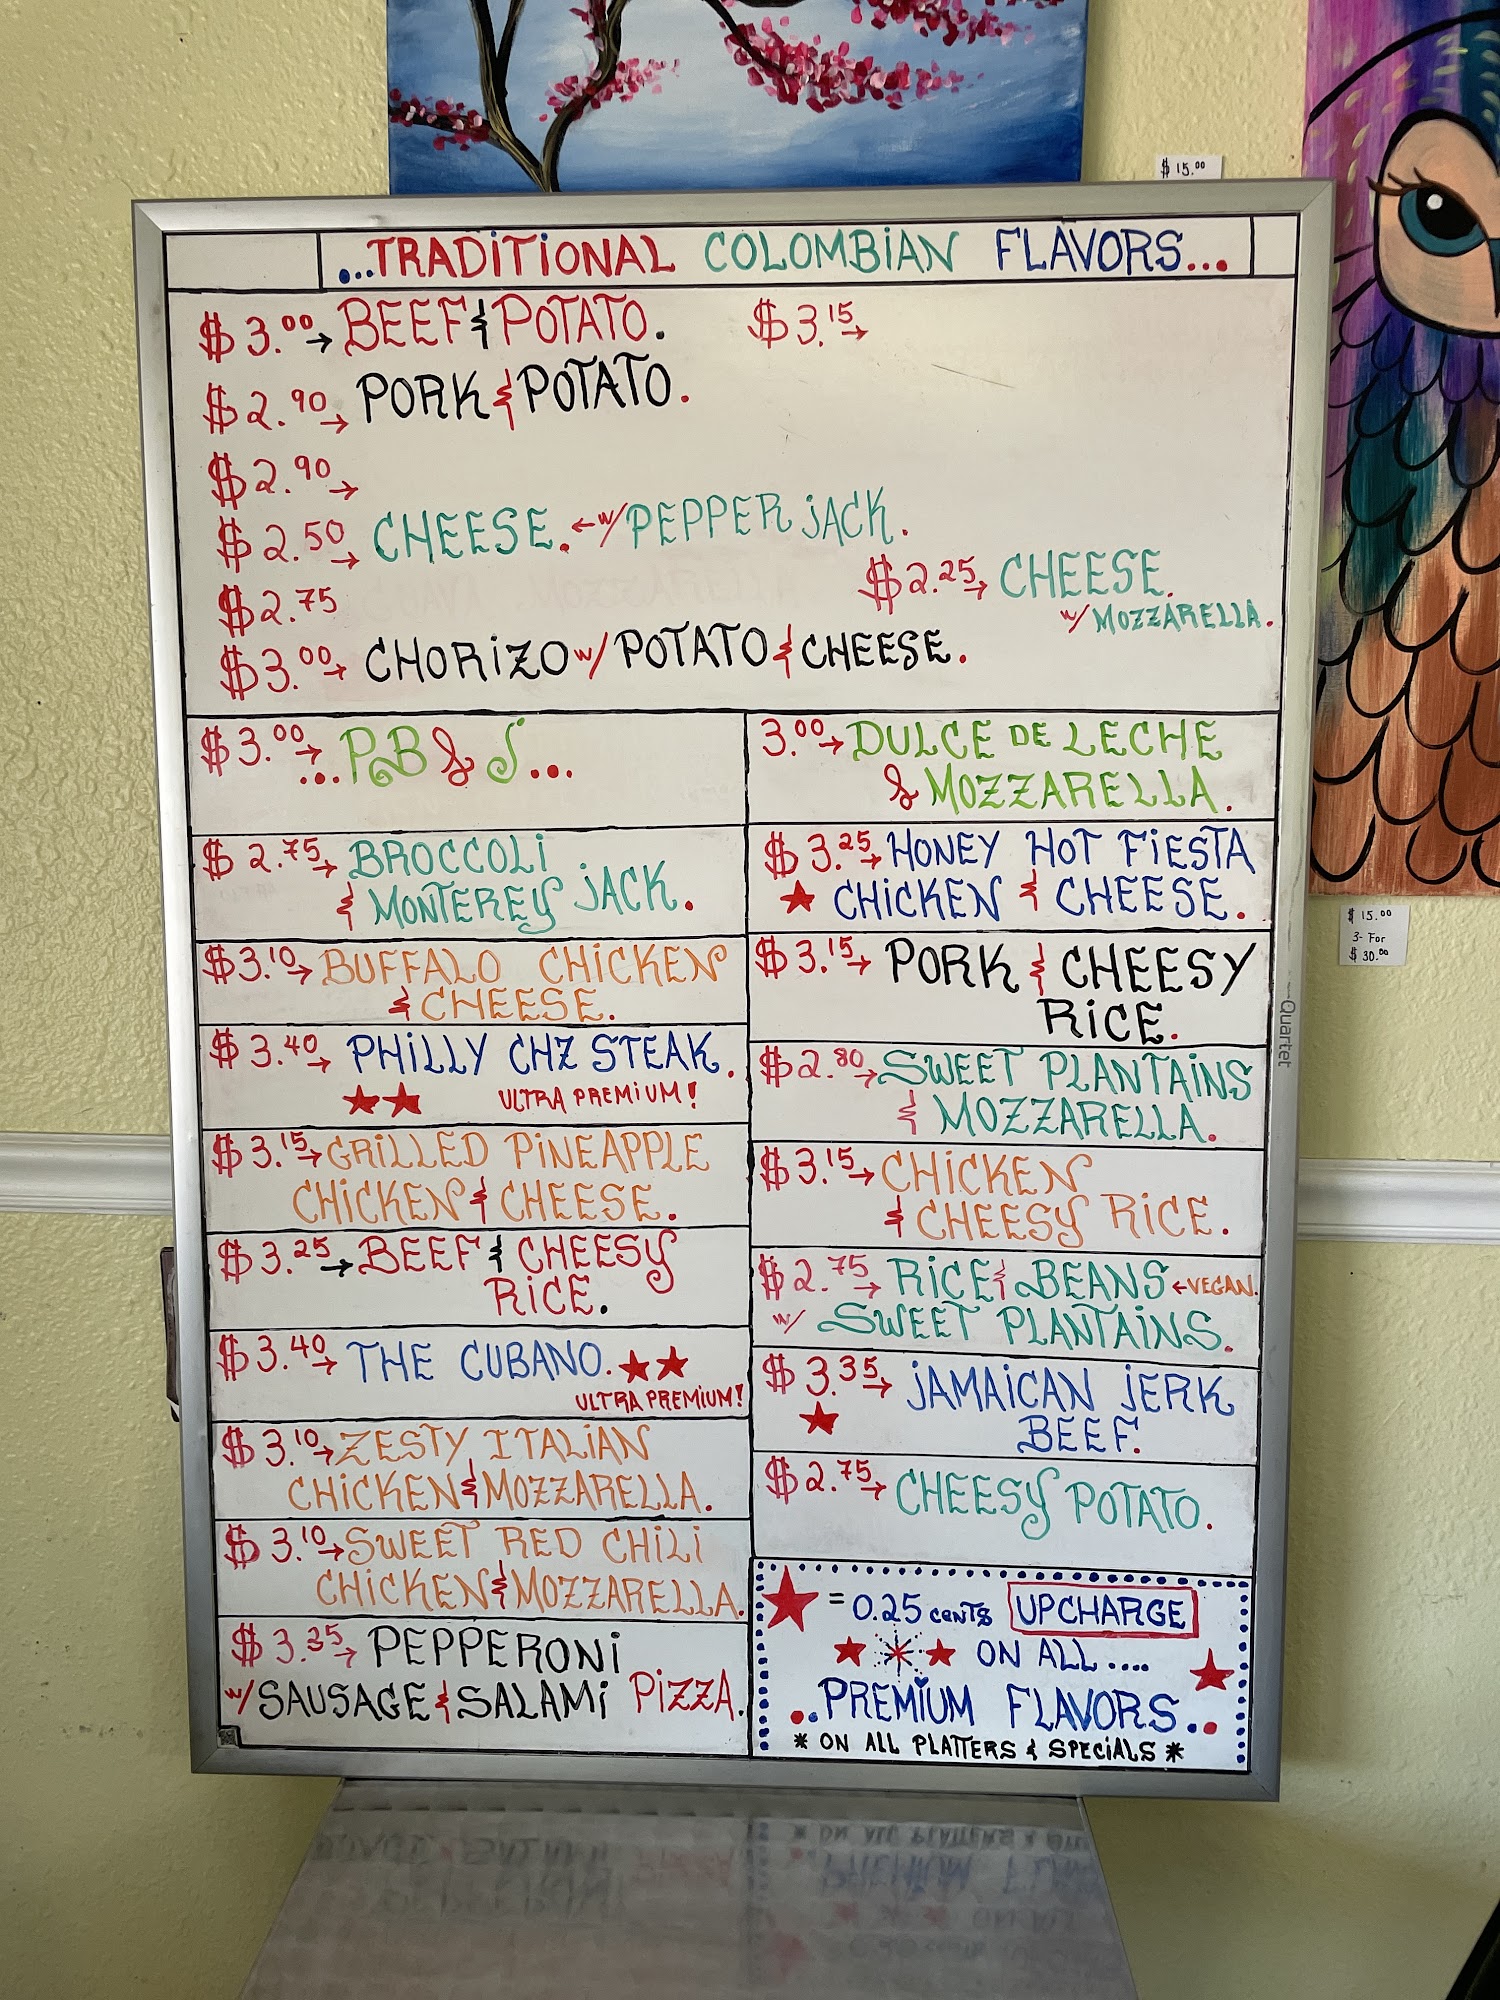 $15.00
...TRADITIONAL COLOMBIAN FLAVORS...
$3.00→ BEEF & POTATO. $3.15→
$2.90→ PORK & POTATO.
$2.90→
$2.50→ CHEESE. ←w/ PEPPER JACK.
$2.25→ CHEESE.
w/ MOZZARELLA.
$2.75
$3.00→ CHORIZO w/ POTATO & CHEESE.
$3.00→
...PB & J...
$2.75→ BROCCOLI
& MONTEREY JACK.
$3.10→ BUFFALO CHICKEN
& CHEESE.
$3.40→ PHILLY CHZ STEAK.
★★ ULTRA PREMIUM!
$3.15→ GRILLED PINEAPPLE
CHICKEN & CHEESE.
$3.25→ BEEF & CHEESY
RICE.
$3.40→ THE CUBANO. ★★
ULTRA PREMIUM!
$3.10→ ZESTY ITALIAN
CHICKEN & MOZZARELLA.
$3.10→ SWEET RED CHILI
CHICKEN & MOZZARELLA.
$3.35→ PEPPERONI
w/ SAUSAGE & SALAMI PIZZA.
3.00→ DULCE DE LECHE
& MOZZARELLA.
$3.25→ HONEY HOT FIESTA
★ CHICKEN & CHEESE.
$3.15→ PORK & CHEESY
RICE.
$2.80→ SWEET PLANTAINS
& MOZZARELLA.
$3.15→ CHICKEN
& CHEESY RICE.
$2.75→ RICE & BEANS ←VEGAN.
w/ SWEET PLANTAINS.
$3.35→ JAMAICAN JERK
★ BEEF.
$2.75→ CHEESY POTATO.
★ = 0.25 CENTS UPCHARGE
ON ALL....
..PREMIUM FLAVORS..
* ON ALL PLATTERS & SPECIALS *
Quartet
$15.00
3- For
$30.00